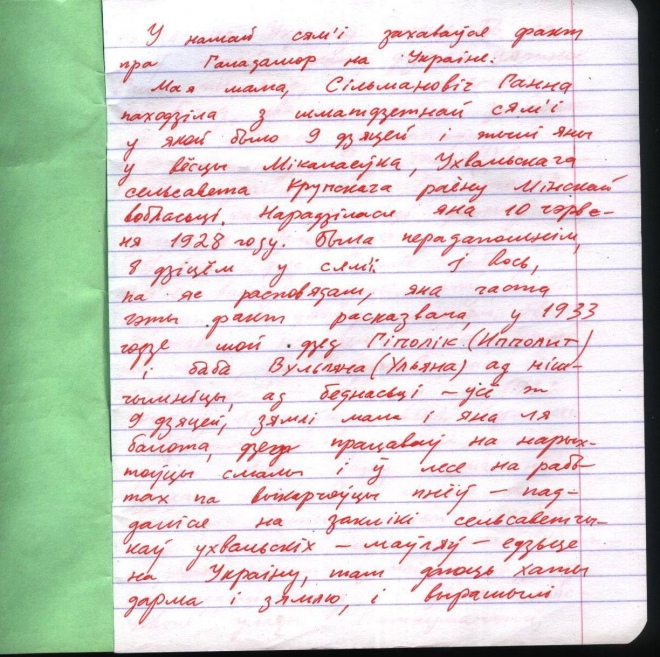 У нашай сям'і захаваўся факт
пра Галадамор на Украіне.
Мая мама, Сільмановіч Ганна
паходзіла з шматдзетнай сям'і
у якой было 9 дзяцей і жылі яны
у вёсцы Мікалаеўка, Ухвальскага
сельсавета Крупскага раёну Мінскай
вобласьці. Нарадзілася яна 10 чэрве-
ня 1928 году. Была перадапошнім,
8 дзіцём у сям'і. І вось,
па яе расповядам, яна часта
гэты факт расказвала, у 1933
годзе мой дзед Гіполік (Ипполит)
і баба Вульяна (Ульяна) ад ніш-
чымніцы, ад беднасьці – усё ж
9 дзяцей, зямлі мала і яна ля
балота, дзед працаваў на нарых-
тоўцы смалы і ў лесе на рабо-
тах па выкарчоўцы пнёў – пад-
даліся на заклікі сельсаветчы-
каў ухвальскіх – маўляў – едзьце
на Украіну, там даюць хаты
дарма і зямлю, і вырашылі